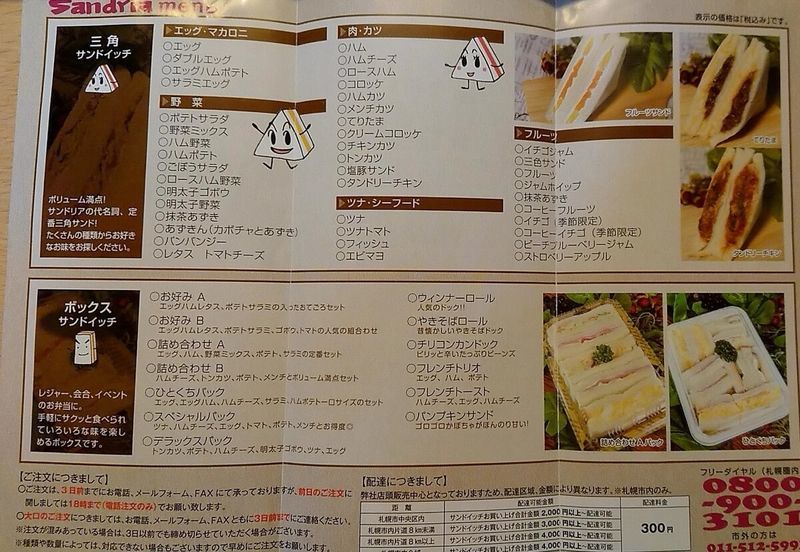 Sandria menu
表示の価格は「税込み」です。
三角
サンドイッチ
ボリューム満点!
サンドリアの代名詞、定
番三角サンド!
たくさんの種類からお好き
なお味をお探しください。
エッグ・マカロニ
○エッグ
○ダブルエッグ
○エッグハムポテト
○サラミエッグ
野 菜
○ポテトサラダ
○野菜ミックス
○ハム野菜
○ハムポテト
○ごぼうサラダ
○ロースハム野菜
○明太子ゴボウ
○明太子野菜
○抹茶あずき
○あずきん(カボチャとあずき)
○バンバンジー
○レタス トマトチーズ
肉・カツ
○ハム
○ハムチーズ
○ロースハム
○コロッケ
○ハムカツ
○メンチカツ
○てりたま
○クリームコロッケ
○チキンカツ
○トンカツ
○塩豚サンド
○タンドリーチキン
ツナ・シーフード
○ツナ
○ツナトマト
○フィッシュ
○エビマヨ
フルーツサンド
フルーツ
○イチゴジャム
○三色サンド
○フルーツ
○ジャムホイップ
○抹茶あずき
○コーヒーフルーツ
○イチゴ(季節限定)
○コーヒーイチゴ(季節限定)
○ピーチブルーベリージャム
○ストロベリーアップル
てりたま
タンドリーチキン
ボックス
サンドイッチ
レジャー、会合、イベント
のお弁当に。
手軽にサクッと食べられ
ていろいろな味を楽し
めるボックスです。
○お好み A
エッグハムレタス、ポテトサラミの入ったおてごろセット
○お好み B
エッグハムレタス、ポテトサラミ、ゴボウ、トマトの人気の組合わせ
○詰め合わせ A
エッグ、ハム、野菜ミックス、ポテト、サラミの定番セット
○詰め合わせ B
ハムチーズ、トンカツ、ポテト、メンチとボリューム満点セット
○ひとくちパック
エッグ、エッグハム、ハムチーズ、エッグ、サラミ、ハムポテト一口サイズのセット
○スペシャルパック
ツナ、ハムチーズ、エッグ、トマト、ポテト、メンチとお得度◎
○デラックスパック
トンカツ、ポテト、ハムチーズ、明太子ゴボウ、ツナ、エッグ
○ウィンナーロール
人気のドック!!
○やきそばロール
昔懐かしいやきそばドック
○チリコンカンドック
ピリッと辛いたっぷりビーンズ
○フレンチトリオ
エッグ、ハム、ポテト
○フレンチトースト
ハムチーズ、エッグ、ハムチーズ
○パンプキンサンド
ゴロゴロかぼちゃがほんのり甘い!
詰め合わせ A パック
ひとくちパック
【ご注文につきまして】
○ご注文は、3日前までにお電話、メールフォーム、FAX にて承っておりますが、前日のご注文に
関しましては18時まで(電話注文のみ)でお願い致します。
○大口のご注文につきましては、お電話、メールフォーム、FAX ともに3日前までにご連絡ください。
※注文が混みあっている場合は、3日以前でも締め切らせていただく場合がございます。
※種類や数量によっては、対応できない場合もございますので早めにご注文をお願いします。
【配達につきまして】
弊社店頭販売中心となっておりますため、配達区域、金額により異なります。※札幌市内のみ。
距 離 配達可能金額 配達料金
札幌市中央区内 サンドイッチお買い上げ合計金額 2,000 円以上~配達可能
札幌市内片道 8 ㎞未満 サンドイッチお買い上げ合計金額 3,000 円以上~配達可能
札幌市内片道 8 ㎞以上 サンドイッチお買い上げ合計金額 4,000 円以上~配達可能
300円
フリーダイヤル(札幌圏内
0800
-900-
3101
市外の方は
011-512-599